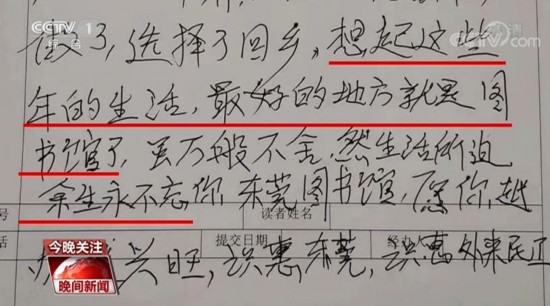 CCTV 1
综合
CCTV.com
傲了,选择了回乡,想起这些
年的生活,最好的地方就是图
书馆了,虽万般不舍,然生活所迫
余生永不忘你,东莞图书馆,愿你越
号
读者姓名
话
提交日期
经办人
兴旺,识惠东莞,识惠外来民工
今晚关注
晚间新闻